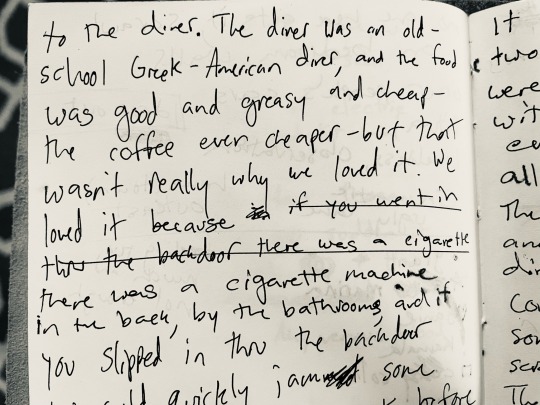 to the diner. The diner was an old-
school Greek-American diner, and the food
was good and greasy and cheap-
the coffee even cheaper-but that
wasn't really why we loved it. We
loved it because if you went in
thru the backdoor there was a cigarette
there was a cigarette machine
in the back, by the bathrooms, and if
you slipped in thru the backdoor
quickly jam some
before
It
two
were
all
The
and